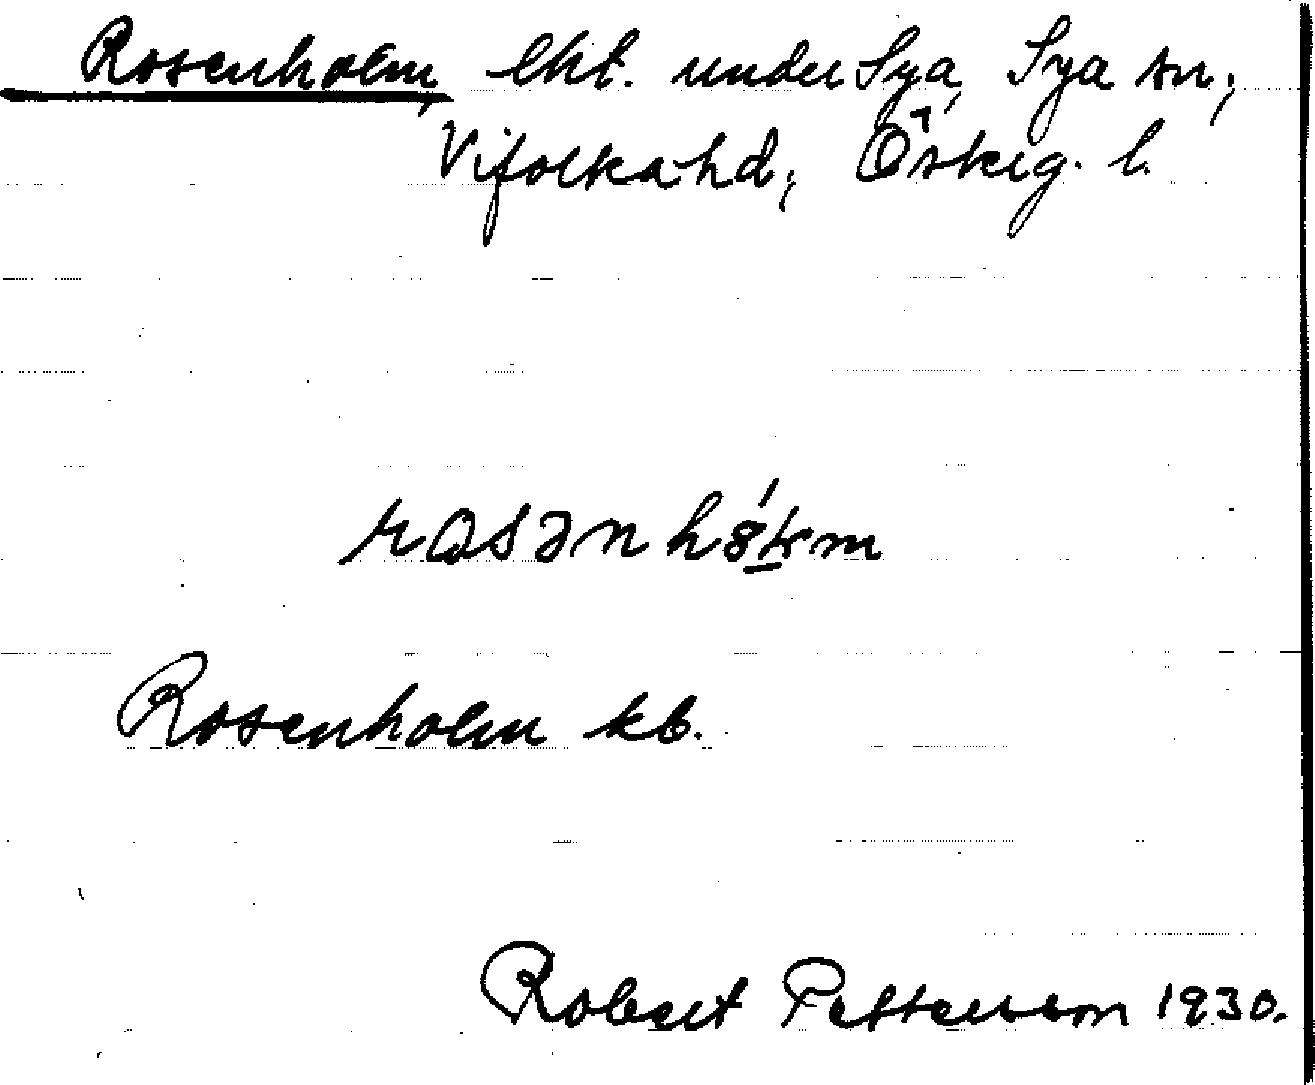 Rosenholm, lht. under Sya, Sya sn,
Vifolka hd, Östergl.
Rosenholm kb.
Robert Pettersson 1930.